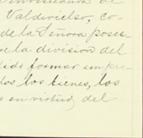 Valdivieler, co-
de la Señora poses-
e la division del
dido formar un pre-
dos los bienes, los
en virtud, del